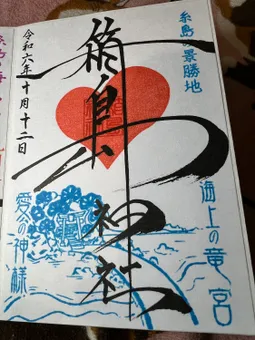 糸島の景勝地
海上の竜宮
箱島神社
令和六年十月十二日
愛の神様